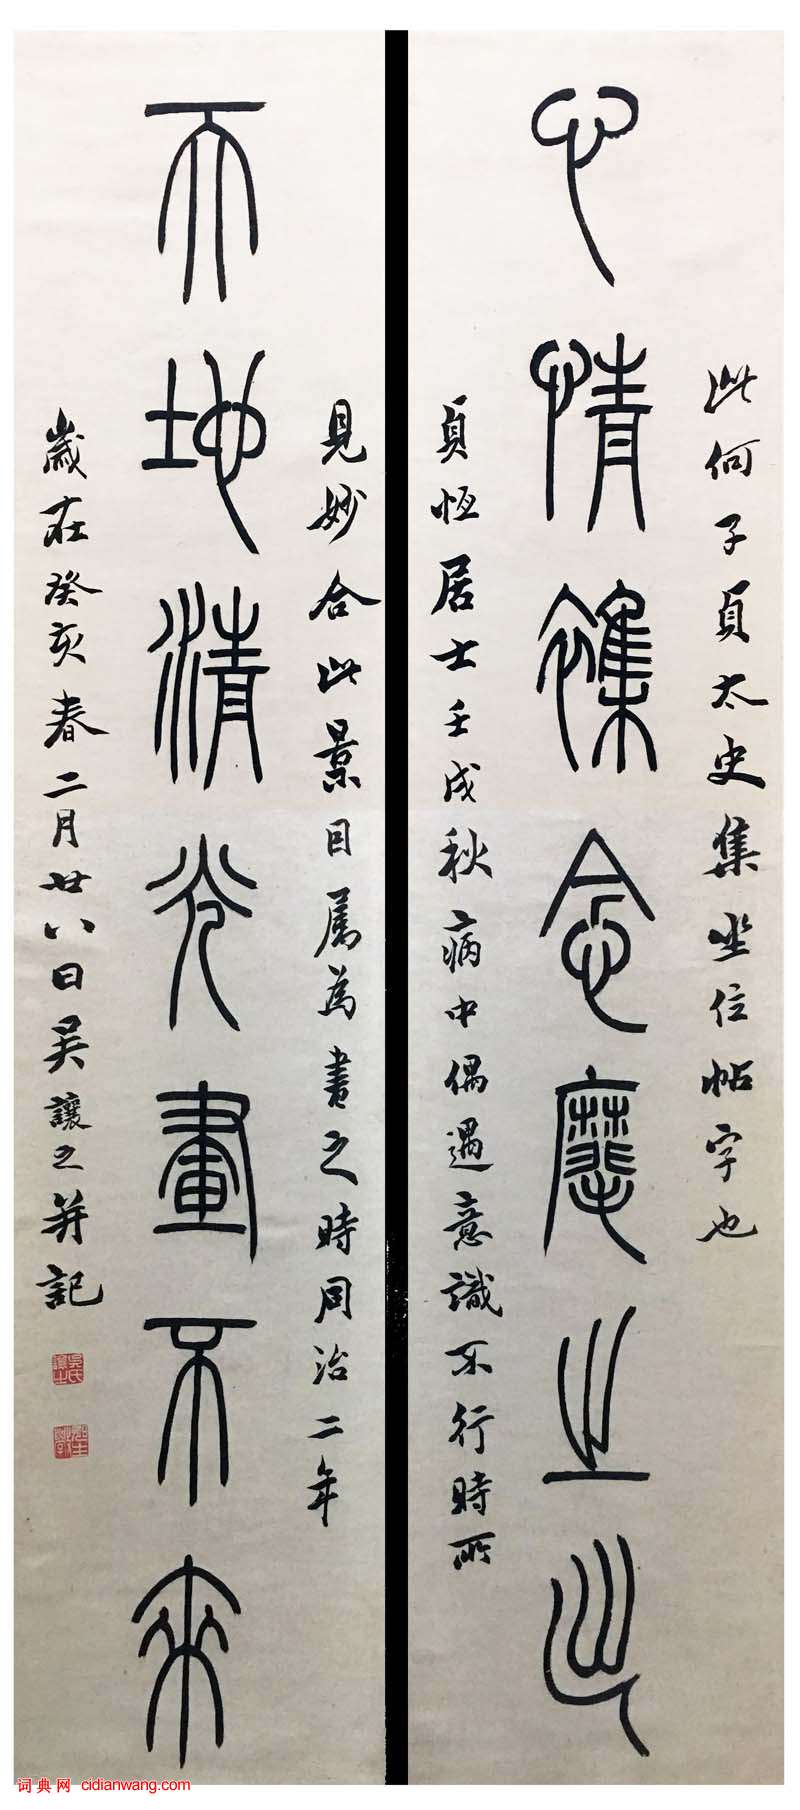 此何子貞太史集坐位帖字也
心情雜念靡之止
貞恆居士壬戌秋病中偶遇意識不行時所
見妙合此景目屬為書之時同治二年
天地清光畫不來
歲在癸亥春二月廿八日吳讓之并記
詞典网 cidianwang.com